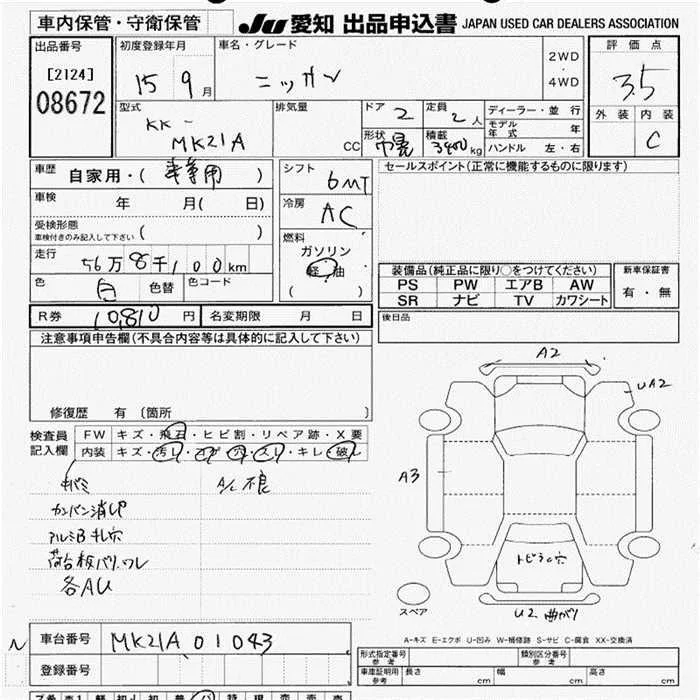 車内保管・守衛保管 JU 愛知 出品申込書 JAPAN USED CAR DEALERS ASSOCIATION
出品番号 初度登録年月 車名・グレード 2WD 評価点
[2124] 15 9月 ニッサン ・ 3.5
08672 4WD
型式 排気量 ドア 2 定員 2人 ディーラー・並行 外装 内装
KK- モデル年式 年 C
MK21A CC 形状 巾晃 積載 3400kg ハンドル 左・右
車歴 自家用・( 事業用 ) シフト 6MT セールスポイント(正常に機能するものに限ります)
車検 年 月( 日) 冷房 AC
受検形態
車検付きのみ記入して下さい ( ) 燃料
走行 56万8千100km ガソリン 装備品(純正品に限り○をつけてください) 新車保証書
色 白 色替 色コード 軽油 PS PW エアB AW 有・無
( ) SR ナビ TV カワシート
R券 10,810円 名変期限 月 日 後日品
注意事項申告欄(不具合内容等は具体的に記入して下さい)
修復歴 有 〔箇所 〕
検査員 FW キズ・飛石・ヒビ割・リペア跡・X要
記入欄 内装 キズ・汚レ・コゲ・穴・スレ・キレ・破レ
キバミ A/C不良
カンバン消し跡
アルミB キレ穴
荷台板バリ、ワレ
各AU
A2
UA2
A3
トビラに穴
スペア
U2 曲がり
A-キズ E-エクボ U-凹み W-補修跡 S-サビ C-腐食 XX-交換済
N 車台番号 MK21A 01043
登録番号
形式指定番号 参考 類別区分番号 参考
車庫証明用 参考 長さ cm 幅 cm 高さ cm